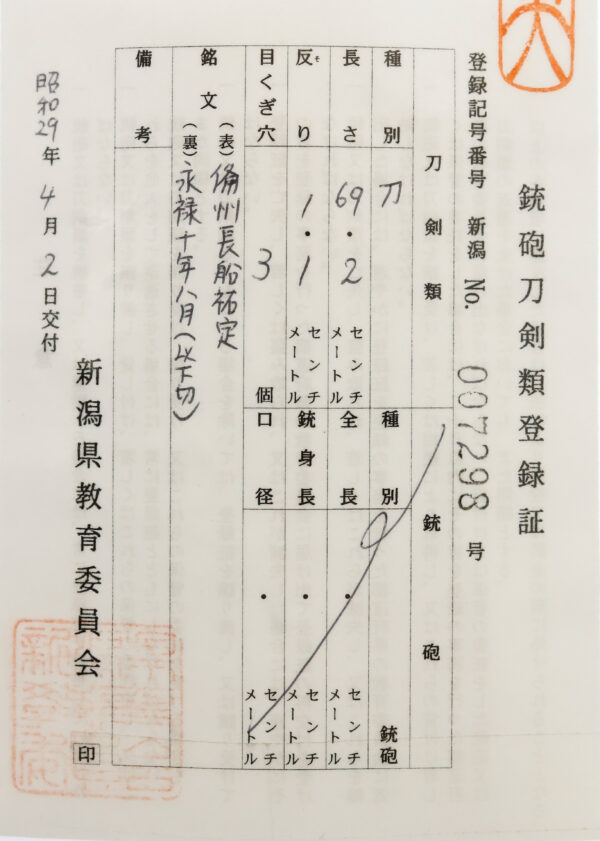 銃砲刀剣類登録証
登録記号番号 新潟 No. 007298 号
刀剣類
銃砲
種別 刀
長さ 69・2 センチメートル
反り 1・1 センチメートル
そ
目くぎ穴 3 個
種別 銃砲
全長 ・ センチメートル
銃身長 ・ センチメートル
口径 ・ センチメートル
銘文 (表) 備州長船祐定
(裏) 永禄十年八月(以下切)
備考
昭和29年4月2日交付
新潟県教育委員会 印